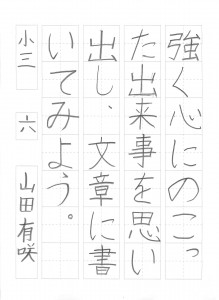 強く心にのこっ
た出来事を思い
出し、文章に書
いてみよう。
小三 六 山田有咲